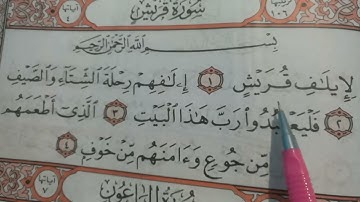 سورة قريش
بِسْمِ اللَّهِ الرَّحْمَٰنِ الرَّحِيمِ
لِإِيلَٰفِ قُرَيْشٍ ١ إِۦلَٰفِهِمْ رِحْلَةَ الشِّتَآءِ وَالصَّيْفِ
٢ فَلْيَعْبُدُوا۟ رَبَّ هَٰذَا الْبَيْتِ ٣ الَّذِىٓ أَطْعَمَهُم
مِّن جُوعٍ وَءَامَنَهُم مِّنْ خَوْفٍ ٤
سورة الماعون